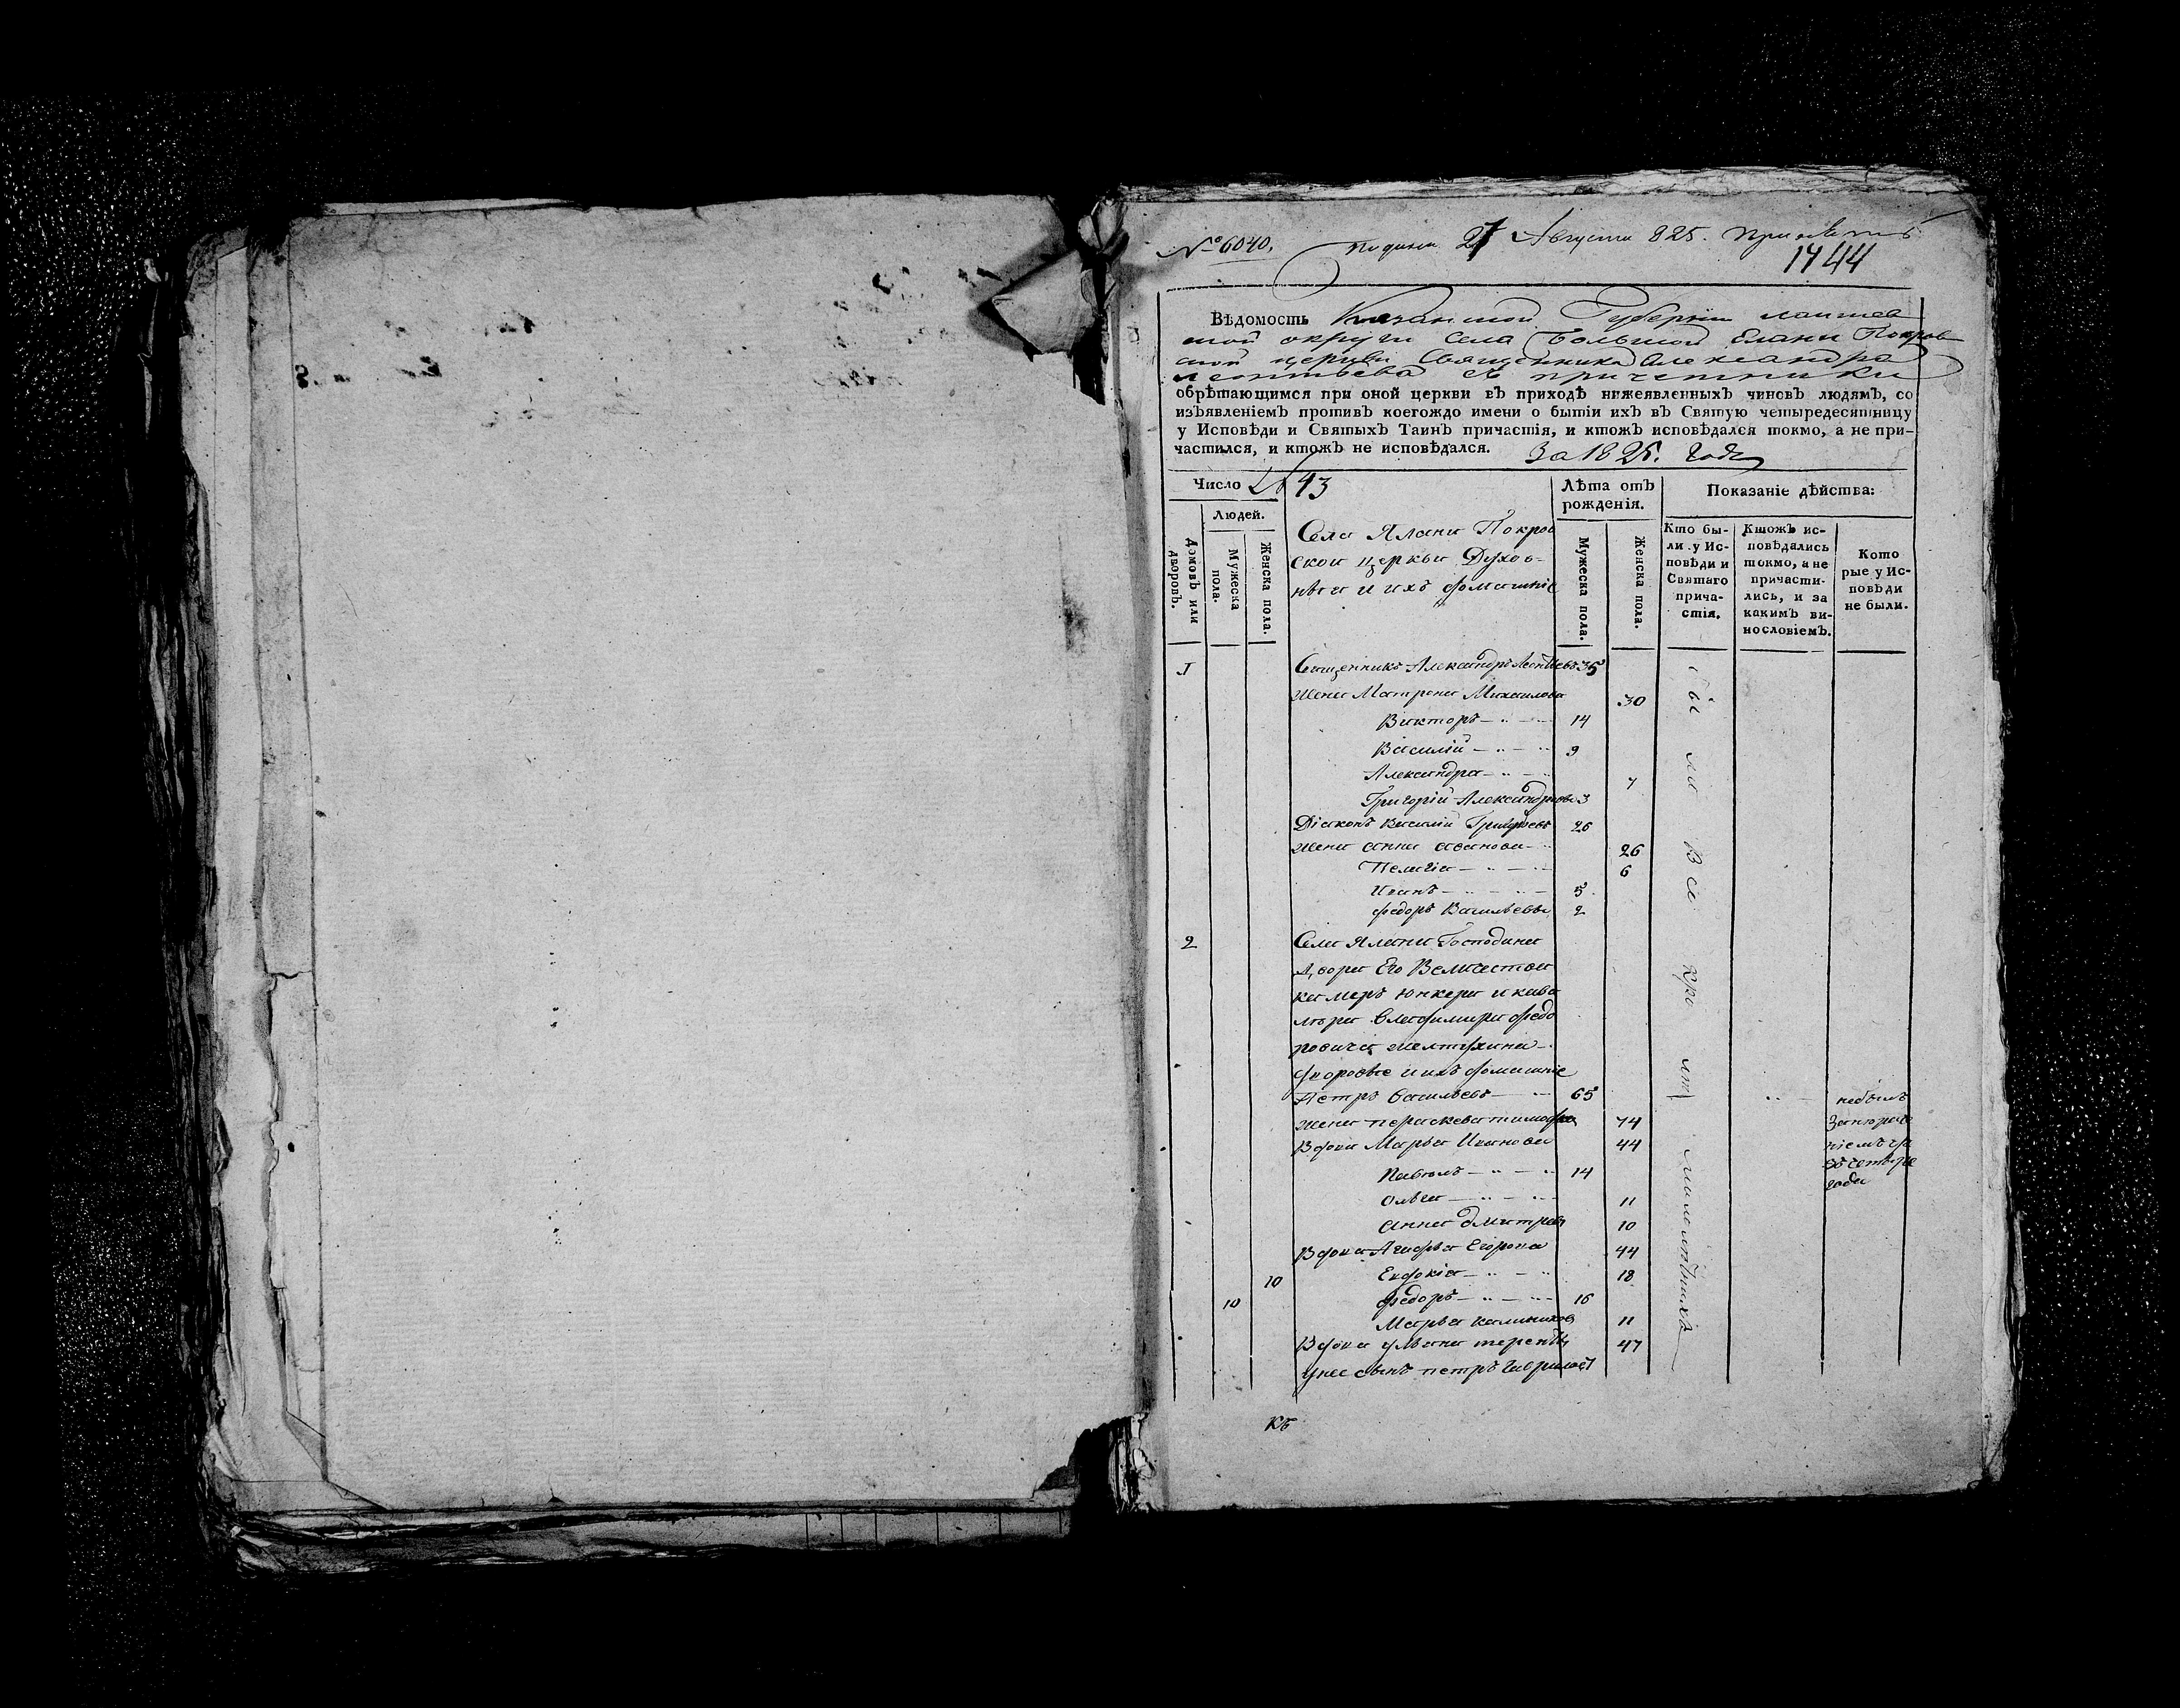 № 6040. Подана 27 Августа 825. При
1744
Вѣдомость Казанской Губерніи лаишев
ской округи Села Большой Елани Покров
ской церкви Священника Александра
леонтьева съ причетники
обрѣтающимся при оной церкви въ приходѣ нижеявленныхъ чиновъ людямъ, со
изъявленіемъ противъ коегождо имени о бытіи ихъ въ Святую четыредесятницу
у Исповѣди и Святыхъ Таинъ причастія, и ктожъ исповѣдался токмо, а не при-
частился, и ктожъ не исповѣдался. За 1825. годъ
Число
43
Людей.
Домовъ или дворовъ.
Мужеска пола.
Женска пола.
Села Ялани Покров
ской церкви Духов-
ныя и ихъ домашніе
Лѣта отъ рожденія.
Мужеска пола.
Женска пола.
Показаніе дѣйства:
Кто бы-
ли у Ис-
повѣди и
Святаго
прича-
стія.
Ктожъ ис-
повѣдались
токмо, а не
причасти-
лись, и за
какимъ ви-
нословіемъ.
Кото
рые у Ис-
повѣди
не были.
1 Священникъ Александръ Леонтьевъ 35
жена Матрена Михаилова 30
Викторъ 14
Василій 9
Александра 7
Григорій Александровы 3
Діаконъ Василій Григорьевъ 26
жена анна иванова 26
Пелагіа 6
Иванъ 5
федоръ Васильевы 2
2 Села Ялани Господина
двора Его Величества
камеръ Юнкера и кава
лѣра Владимира федо
ровича желтухина
дворовые и ихъ домашніе
Петръ Васильевъ 65
жена параскева тимофеева 74
Вдова Марья Иванова 44
Павелъ 14
Ольга 11
Анна дмитревы 10
Вдова Агафья Егорова 44
10 Евдокіа 18
10 федоръ 16
Марья калиникова 11
Вдова ульяна терентьева 47
у нее сынъ петръ гавриловъ
были Всѣ кромѣ малолѣтныхъ
небылъ
За нерадѣ
ніемъ
четыре
года
къ